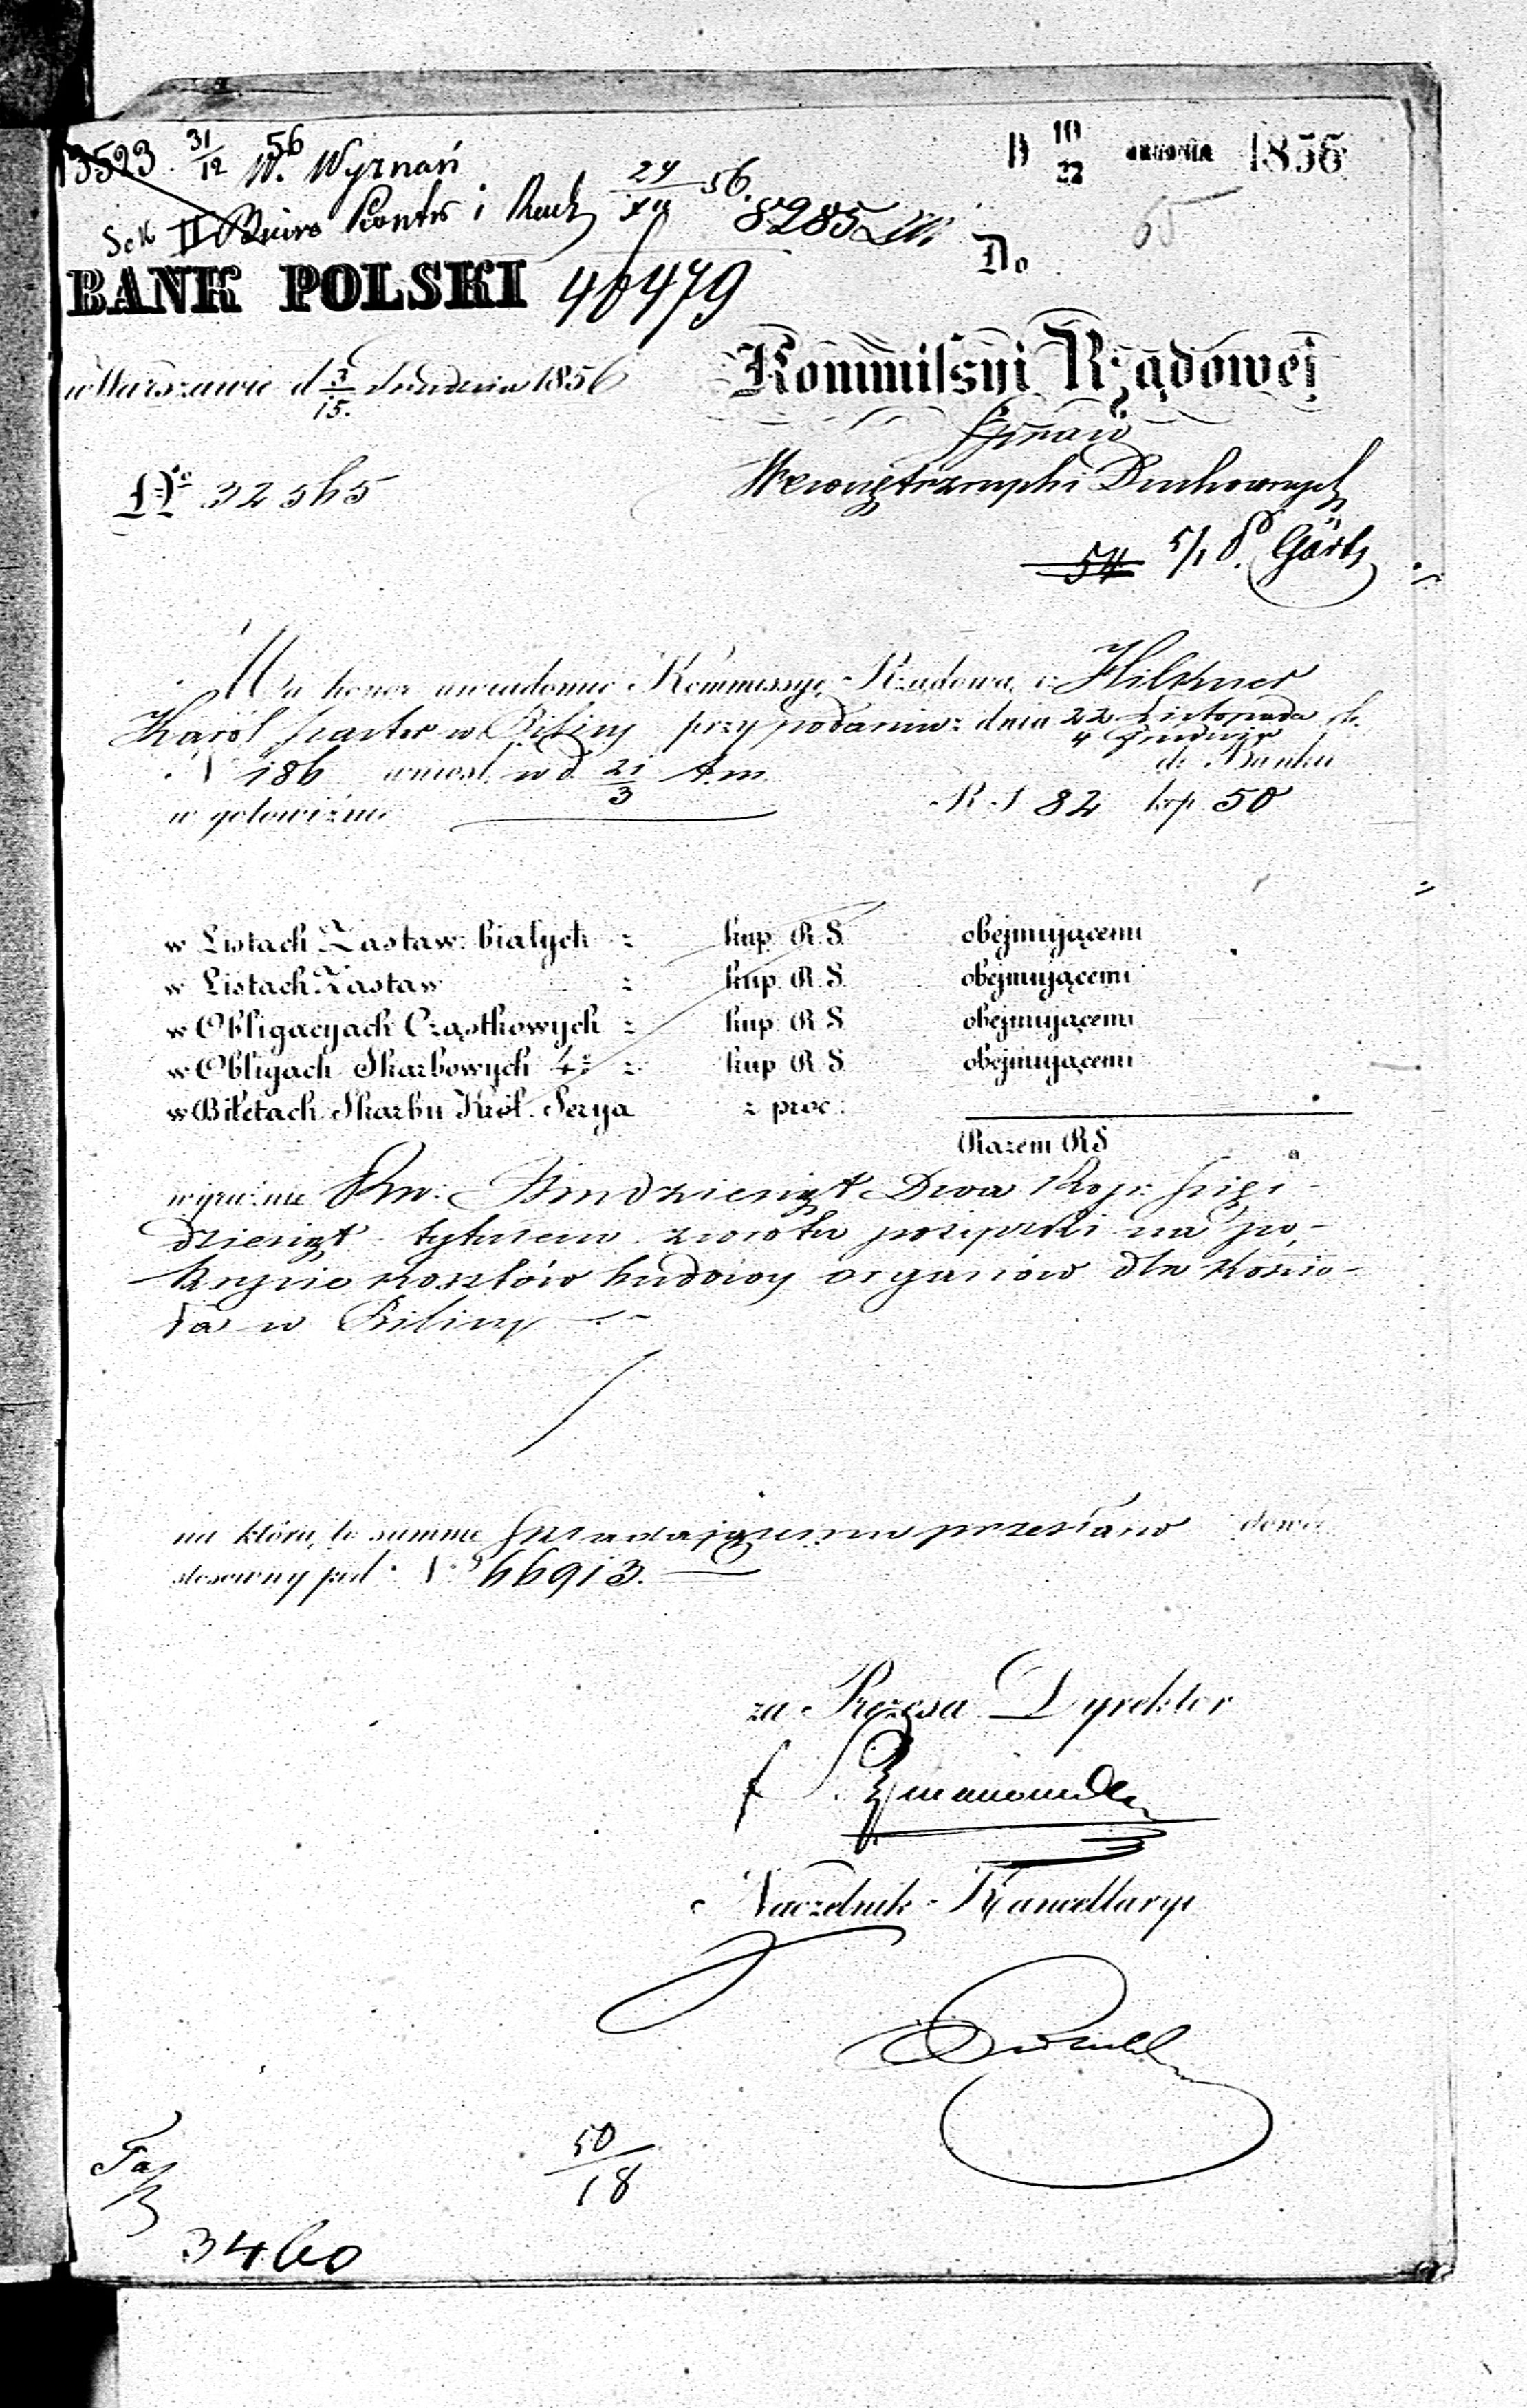 13523 31/12 56 W. Wyznań
D 10/22 GRUDNIA 1856
Sek II Biuro Kontr i Rach 24/XII 56. 8285
65
BANK POLSKI 46479
Do
Kommissyi Rządowej
w Warszawie d 3/15. Grudnia 1856
Spraw
Wewnętrznych i Duchownych
No 32565
5/1 Görtz
Ma honor uwiadomić Kommissyę Rządową, iż Hilkner
Karol pastor w Biliny przy podaniu z dnia 22 Listopada / 4 Grudnia
N 186 wniosł w d. 21/3 t.m. do Banku
w gotowiźnie R.S 82 kop 50
w Listach Zastaw: białych z kup. R.S. obejmującemi
w Listach Zastaw z kup. R.S. obejmującemi
w Obligacyach Cząstkowych z kup. R.S. obejmującemi
w Obligach Skarbowych 4% z kup. R.S. obejmującemi
w Biletach Skarbu Król. Serya z proc:
Razem RS
wyraźnie Rsr: Ośmdziesiąt Dwa Kop: pięć-
dziesiąt tytułem zwrotu pożyczki na po-
krycie kosztów budowy organów dla kościo-
ła w Biliny
na którą to summę składającemu przesłano dowód
stosowny pod No 66913.
za Prezesa Dyrektor
Naczelnik Kancellaryi
50/18
3460